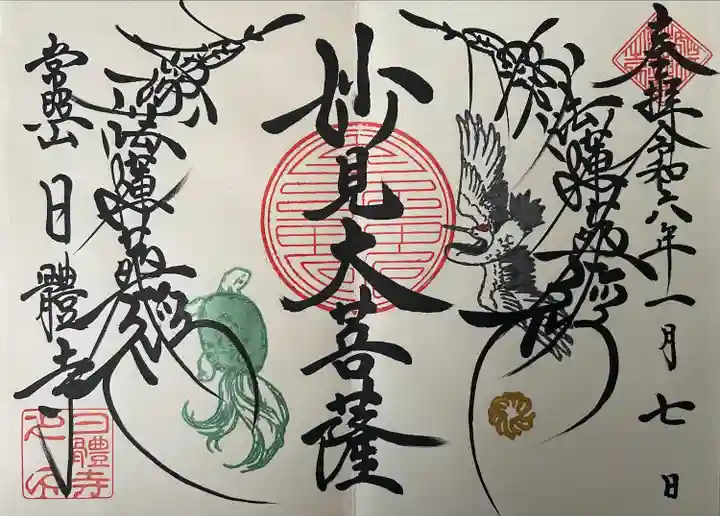 奉拝 令和六年一月七日
南無妙法蓮華経
妙見大菩薩
南無妙法蓮華経
常照山 日體寺
日體寺